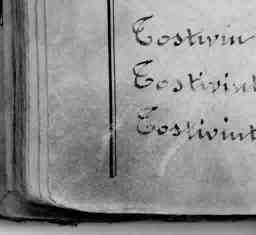 Tostwin
Tostivint
Tostivint